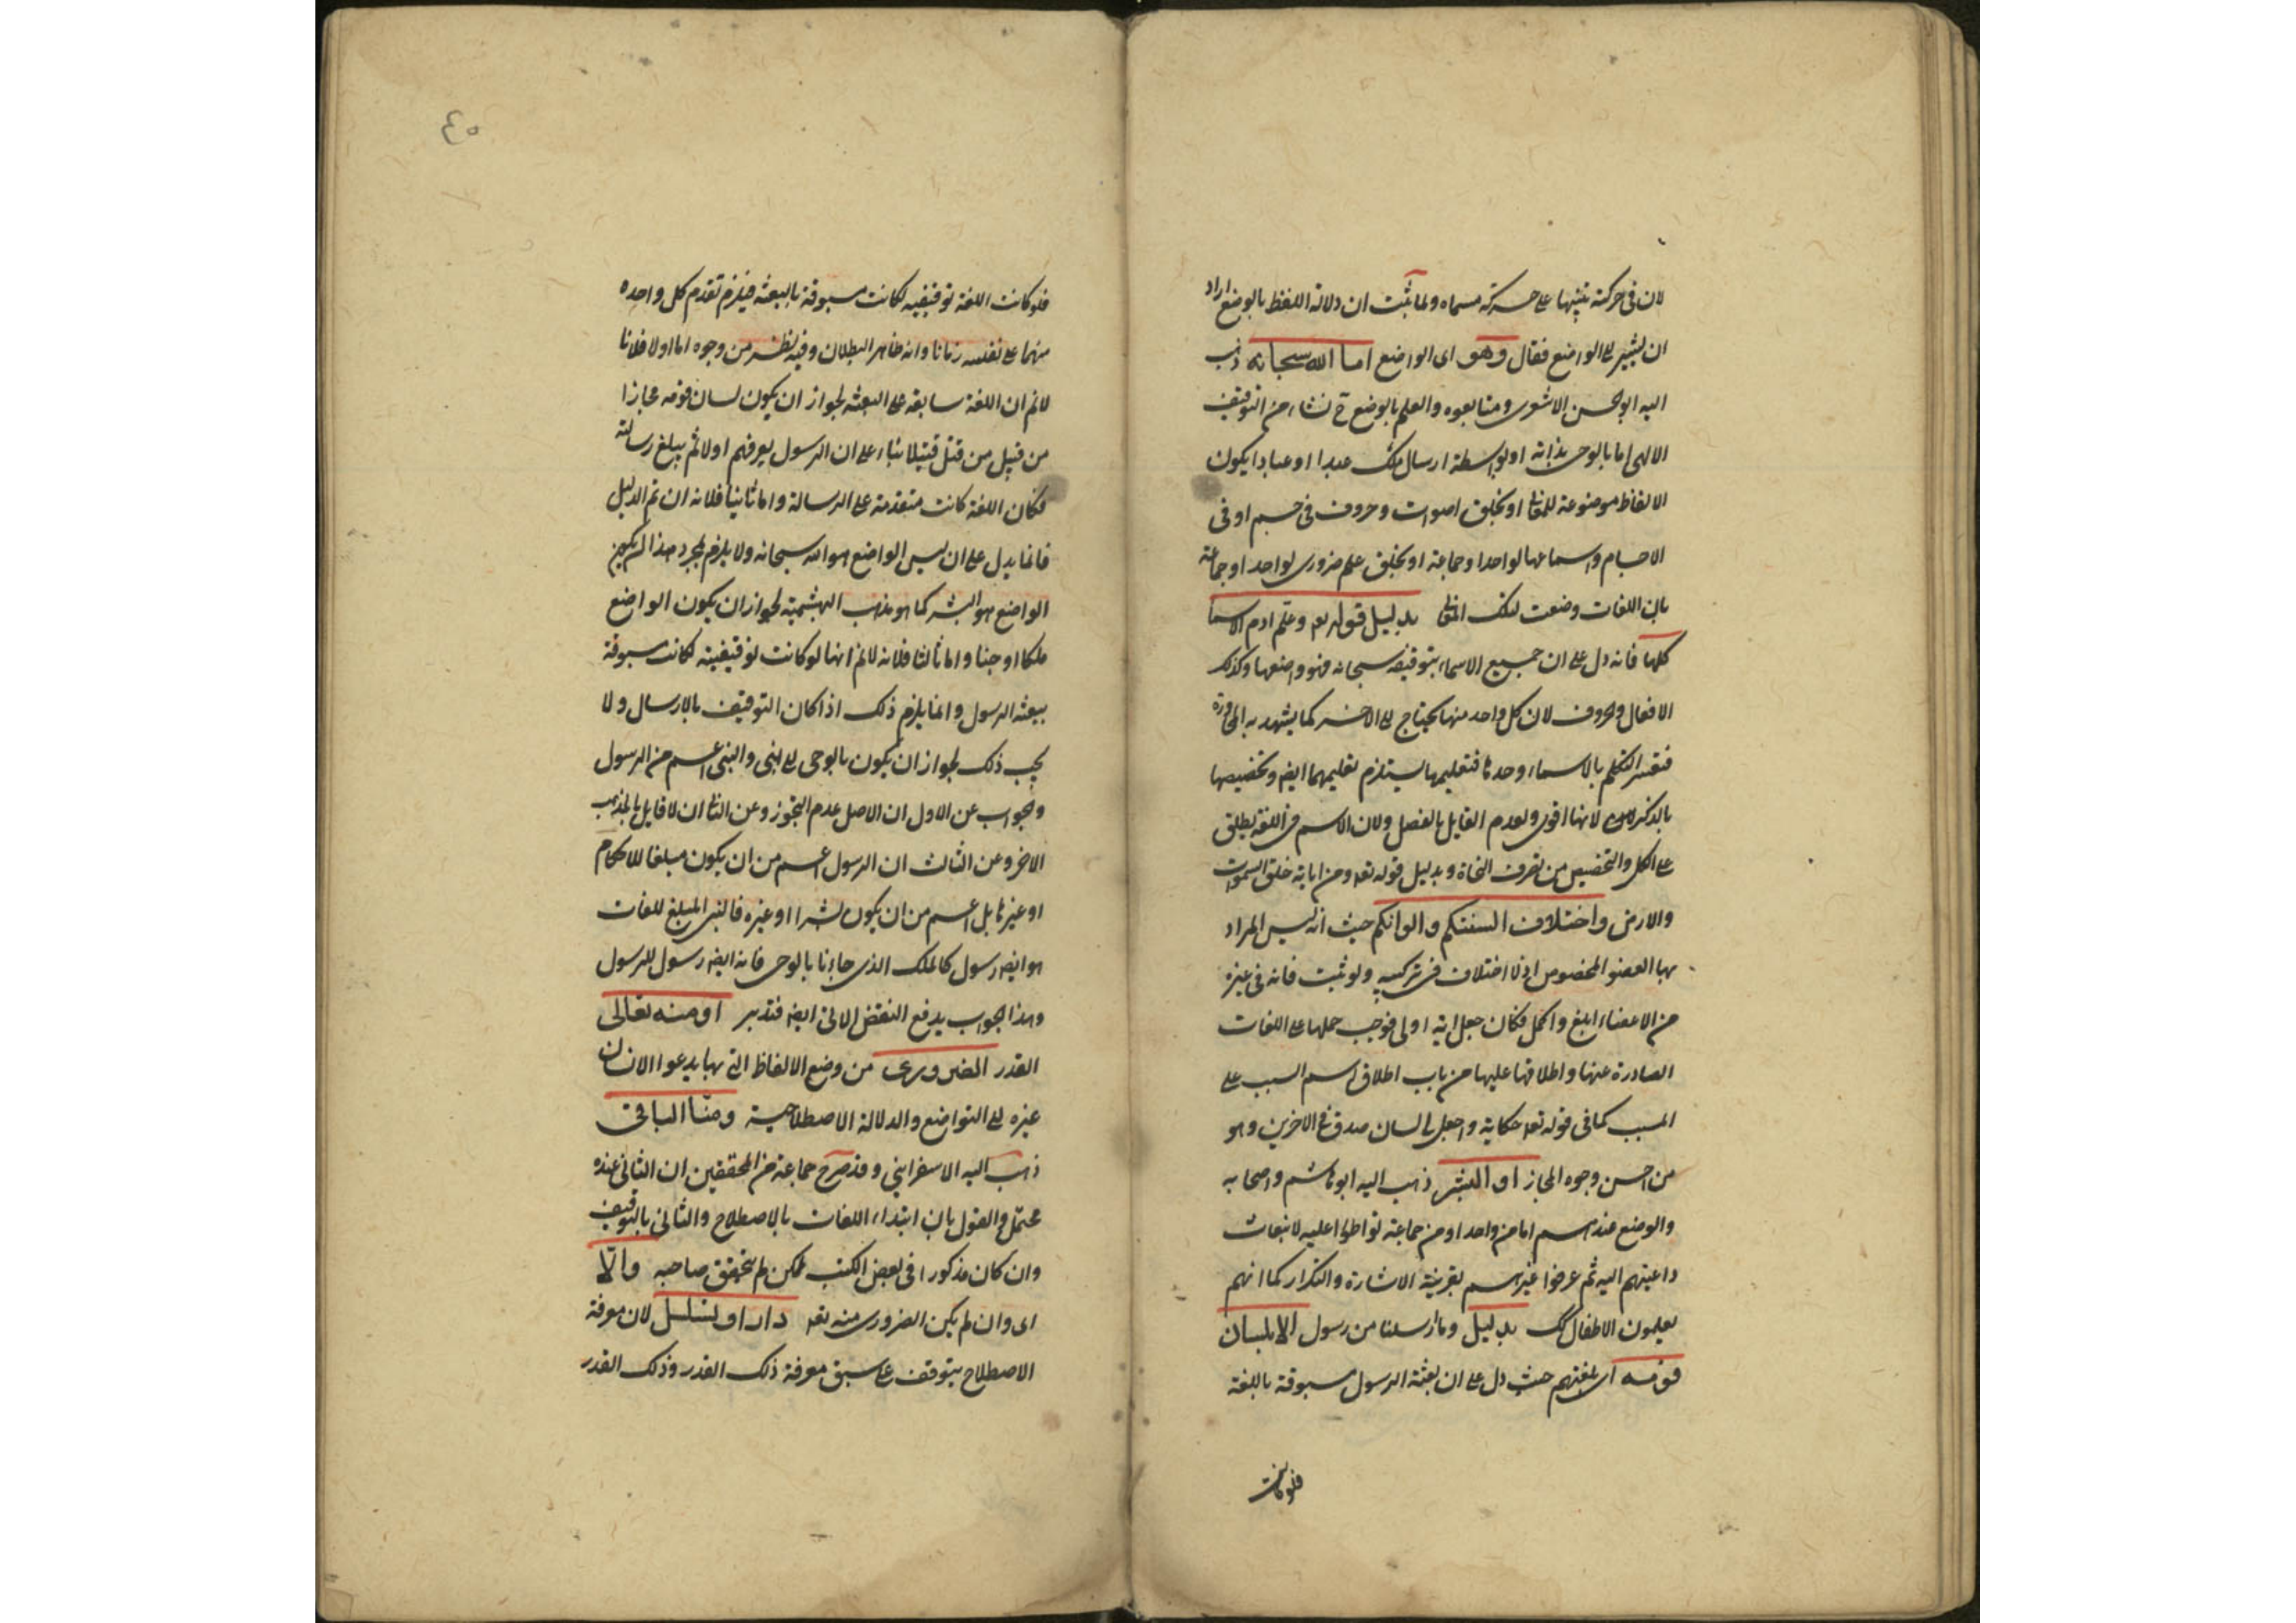 لان فى حركته تنبيها على حركة مسماه ولما ثبت ان دلالة اللفظ بالوضع اراد
ان يشير الى الواضع فقال وهو اى الواضع اما الله سبحانه ذهب
اليه ابو الحسن الاشعرى ومتابعوه والعلم بالوضع ح نشاء من التوقيف
الالهى اما بالوحى بذاته او بواسطة ارسال ملك عبدا او عبادا يكون
الالفاظ موضوعة للمعانى او بخلق اصوات وحروف فى جسم او فى
الاجسام واسماعها لواحد او جماعة او بخلق علم ضرورى لواحد او جماعة
بان اللغات وضعت لتلك المعانى بدليل قوله تعه وعلم ادم الاسما
كلها فانه دل على ان جميع الاسماء بتوقيفه سبحانه فهو واضعها وكذلك
الافعال والحروف لان كل واحد منها يحتاج الى الاخر كما يشهد به المحاورة
فتعسر التكلم بالاسماء وحدها فتعليمها يستلزم تعليمهما ايضه وتخصيصها
بالذكر لانها اقوى ولعدم القايل بالفصل ولان الاسم فى اللغة يطلق
على الكل والتخصيص من تصرف النحاة وبدليل قوله تعه ومن اياته خلق السموات
والارض واختلاف السنتكم والوانكم حيث انه ليس المراد
بها العضو المخصوص اذ لا اختلاف فى تركيبه ولو ثبت فانه فى غيره
من الاعضاء ابلغ واكمل فكان جعل اية اولى فوجب حملها على اللغات
الصادرة عنها واطلاقها عليها من باب اطلاق اسم السبب على
المسبب كما فى قوله تعه حكاية واجعل لى لسان صدق فى الاخرين وهو
من احسن وجوه المجاز او البشر ذهب اليه ابو هاشم واصحابه
والوضع عندهم اما من واحد او من جماعة تواطوا عليه لانبعاث
داعيتهم اليه ثم عرفوا غيرهم بقرينة الاشارة والتكرار كما انهم
يعلمون الاطفال بدليل وما ارسلنا من رسول الا بلسان
قومه اى بلغتهم حيث دل على ان بعثة الرسول مسبوقة باللغة
فلو كانت
٤٥
فلو كانت اللغة توقيفيه لكانت مسبوقة بالبعثه فيلزم تقدم كل واحده
منهما على نفسه زمانا وانه ظاهر البطلان وفيه نظر من وجوه اما اولا فلانا
لانم ان اللغة سابقه على البعثه لجواز ان يكون لسان قومه مجازا
من قبيل من قتل قتيلا بناء على ان الرسول يعرفهم اولا ثم يبلغ رسالته
فكان اللغة كانت متقدمة على الرسالة واما ثانيا فلانه ان تم الدليل
فانما يدل على ان ليس الواضع هو الله سبحانه ولا يلزم بمجرد هذا ان يكون
الواضع هو البشر كما هو مذهب البهشمية لجواز ان يكون الواضع
ملكا او جنا واما ثالثا فلانه لانم انها لو كانت توقيفية لكانت مسبوقة
ببعثه الرسول وانما يلزم ذلك اذا كان التوقيف بالارسال ولا
يجب ذلك لجواز ان يكون بالوحى الى النبى والنبى اعم من الرسول
والجواب عن الاول ان الاصل عدم التجوز وعن الثانى ان لا قايل بالمذهب
الاخر وعن الثالث ان الرسول اعم من ان يكون مبلغا للاحكام
او غيرها بل اعم من ان يكون بشرا او غيره فالنبى المبلغ للغات
هو ايضه رسول كالملك الذى جاءنا بالوحى فانه ايضه رسول للرسول
وهذا الجواب يدفع النقض الاتى ايضه فتدبر او منه تعالى
القدر الضرورى من وضع الالفاظ التى بها يدعوا الانسان
غيره الى التواضع والدلالة الاصطلاحية ومنا الباقى
ذهب اليه الاسفراينى وقد صرح جماعة من المحققين ان الثانى عنده
محتمل والقول بان ابتداء اللغات بالاصطلاح والثانى بالتوقيف
وان كان مذكورا فى بعض الكتب لكن لم يتحقق صاحبه والا
اى وان لم يكن الضرورى منه تعه دار او تسلسل لان معرفة
الاصطلاح يتوقف على سبق معرفة ذلك القدر وذلك القدر